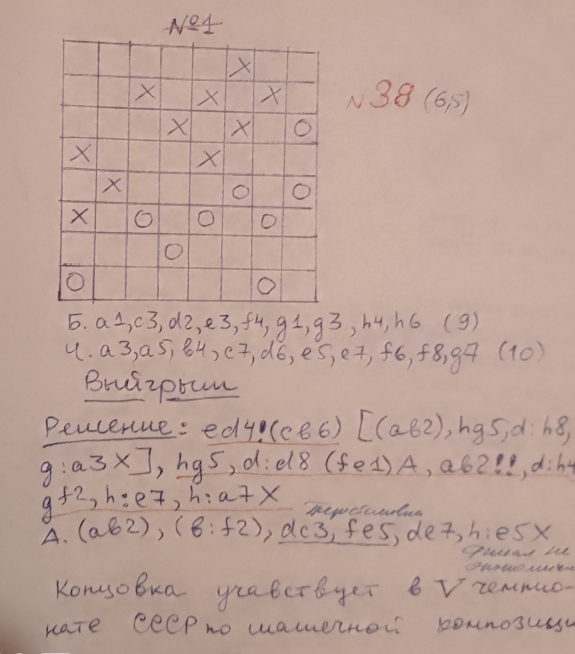 №1
N38 (6,5)
Б. a1, c3, d2, e3, f4, g1, g3, h4, h6 (9)
Ч. a3, a5, b4, c7, d6, e5, e7, f6, f8, g7 (10)
Выйгрыш
Решение: ed4!(cb6) [(ab2), hg5, d:h8,
g:a3X], hg5, d:d8 (fe1)A, ab2!!, d:h4
gf2, h:e7, h:a7X
перестановка
А. (ab2), (b:f2), dc3, fe5, de7, h:e5X
финал не
экономичен
Концовка учавствует в V чемпио-
нате СССР по шашечной композици